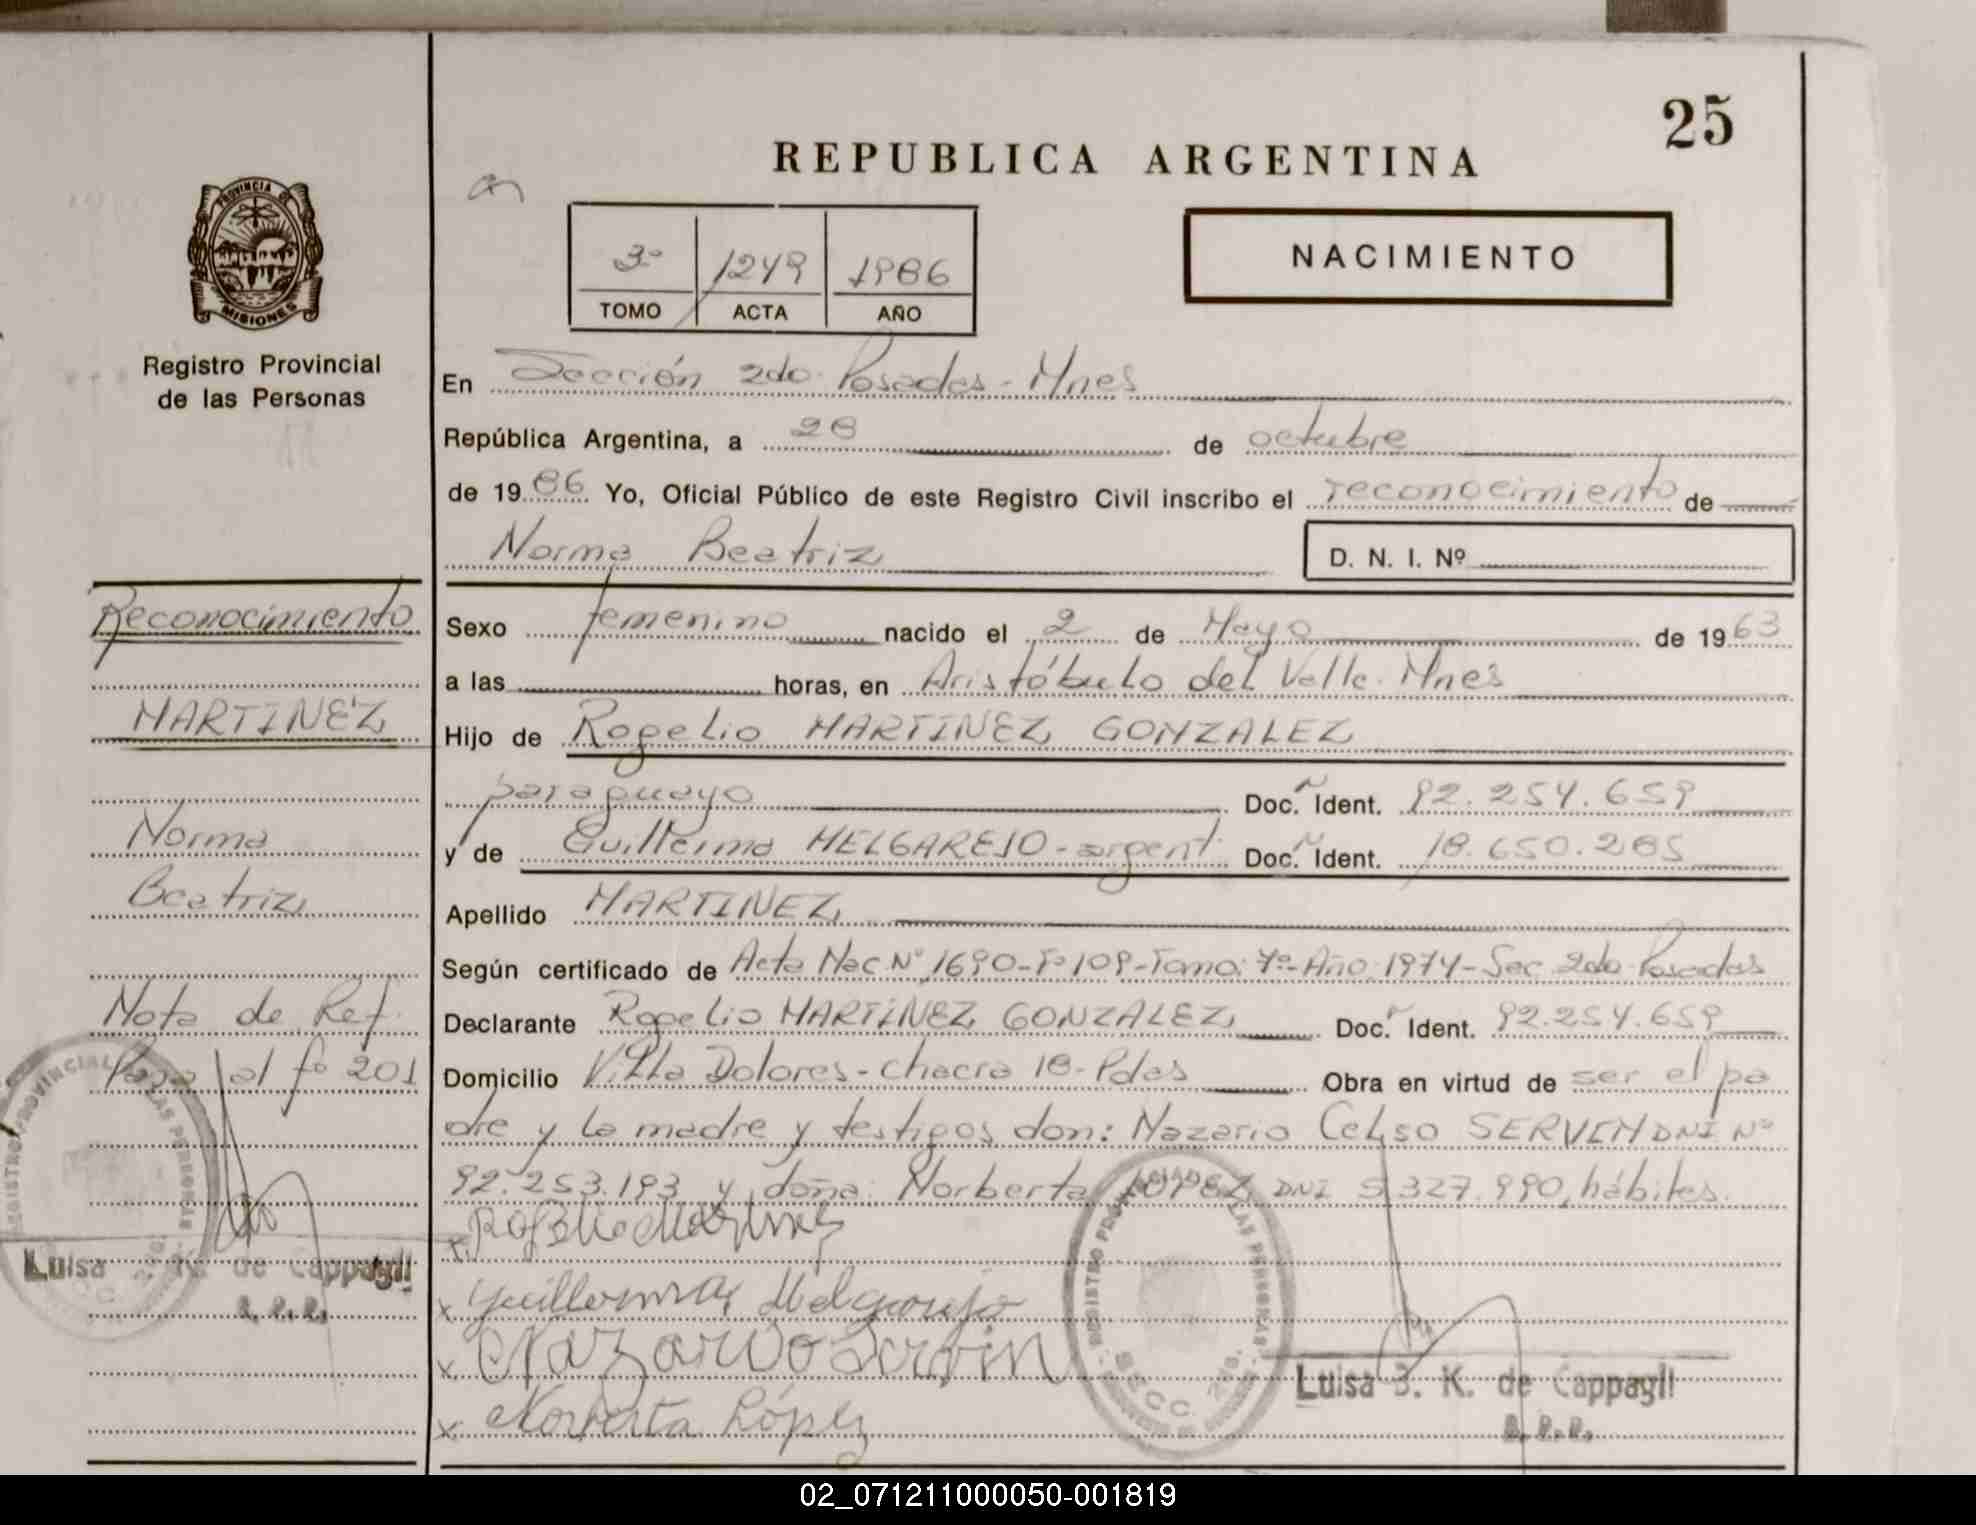 25
REPUBLICA ARGENTINA
PROVINCIA DE
MISIONES
3º 1249 1986
TOMO ACTA AÑO
NACIMIENTO
Registro Provincial
de las Personas
En Sección 2da. Posadas - Mnes
República Argentina, a 28 de octubre
de 1986 Yo, Oficial Público de este Registro Civil inscribo el reconocimiento de
Norma Beatriz D. N. I. Nº
Sexo femenino nacido el 2 de Mayo de 1963
a las horas, en Aristóbulo del Valle. Mnes
Hijo de Rogelio MARTINEZ GONZALEZ
paraguayo Doc. Ident. 92.254.659
y de Guillerma MELGAREJO - argent. Doc. Ident. 18.650.285
Apellido MARTINEZ
Según certificado de Acta Nac. Nº 1690-Fº 109-Tomo: 7º-Año: 1974-Sec. 2da. Posadas
Declarante Rogelio MARTINEZ GONZALEZ Doc. Ident. 92.254.659
Domicilio Villa Dolores - chacra 18 - Pdas Obra en virtud de ser el pa
dre y la madre y testigos don: Nazario Celso SERVEN DNI Nº
92.253.193 y doña: Norberta LOPEZ DNI 5.327.990, hábiles.
Rogelio Martinez
x Guillerma Melgarejo
x Nazario Servin
x Norberta López
REGISTRO PROVINCIAL DE LAS PERSONAS
SECC. 2da.
Luisa B. K. de Cappagli
Reconocimiento
MARTINEZ
Norma
Beatriz
Nota de Ref.
Pasa al fº 201
REGISTRO PROVINCIAL DE LAS PERSONAS
Luisa K. de Cappagli
02_071211000050-001819